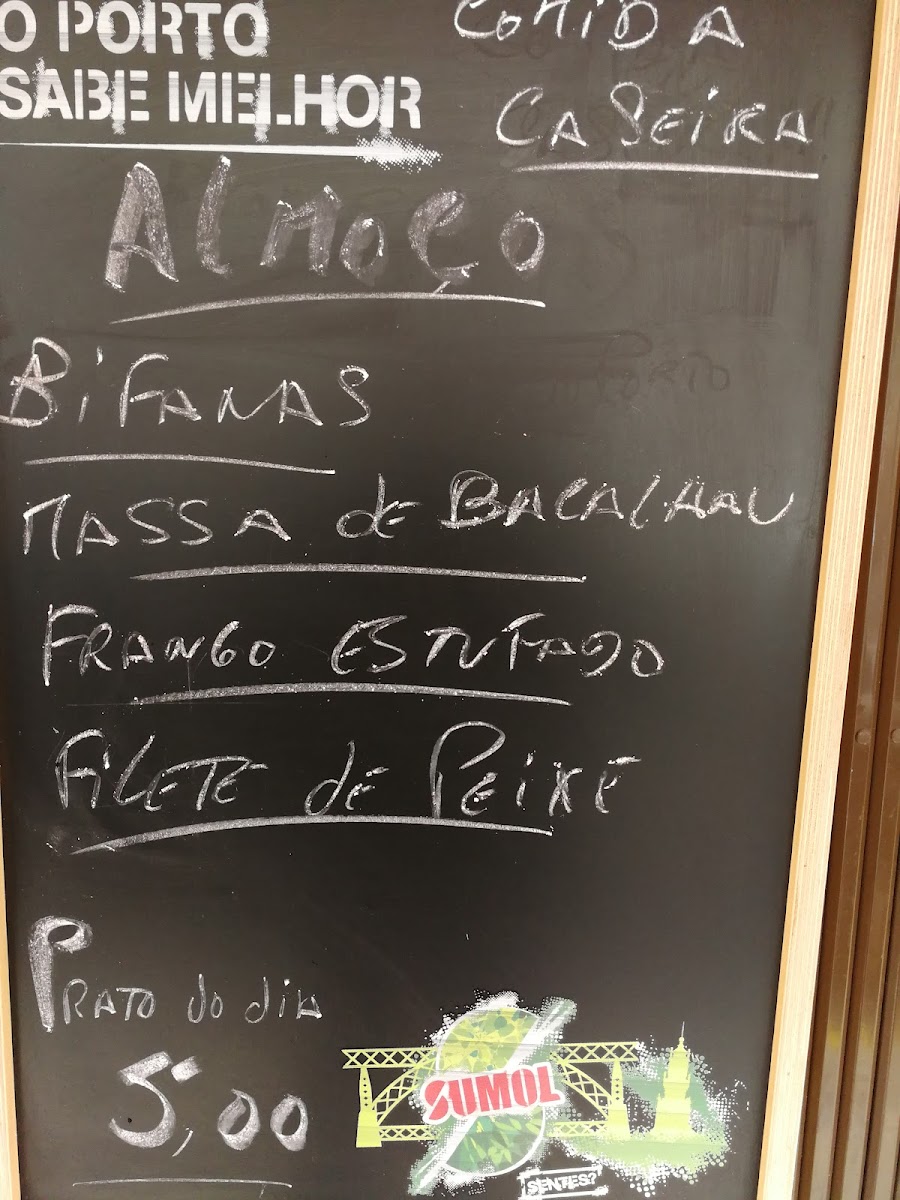 O PORTO
SABE MELHOR
COMIDA
CASEiRA
ALMOÇO
BiFANAS
MASSA de BACALHAU
FRANGO ESTUFADO
FiLETE de PEiXE
PRATO do diA
5,00
SUMOL
SENTES?
PORTO